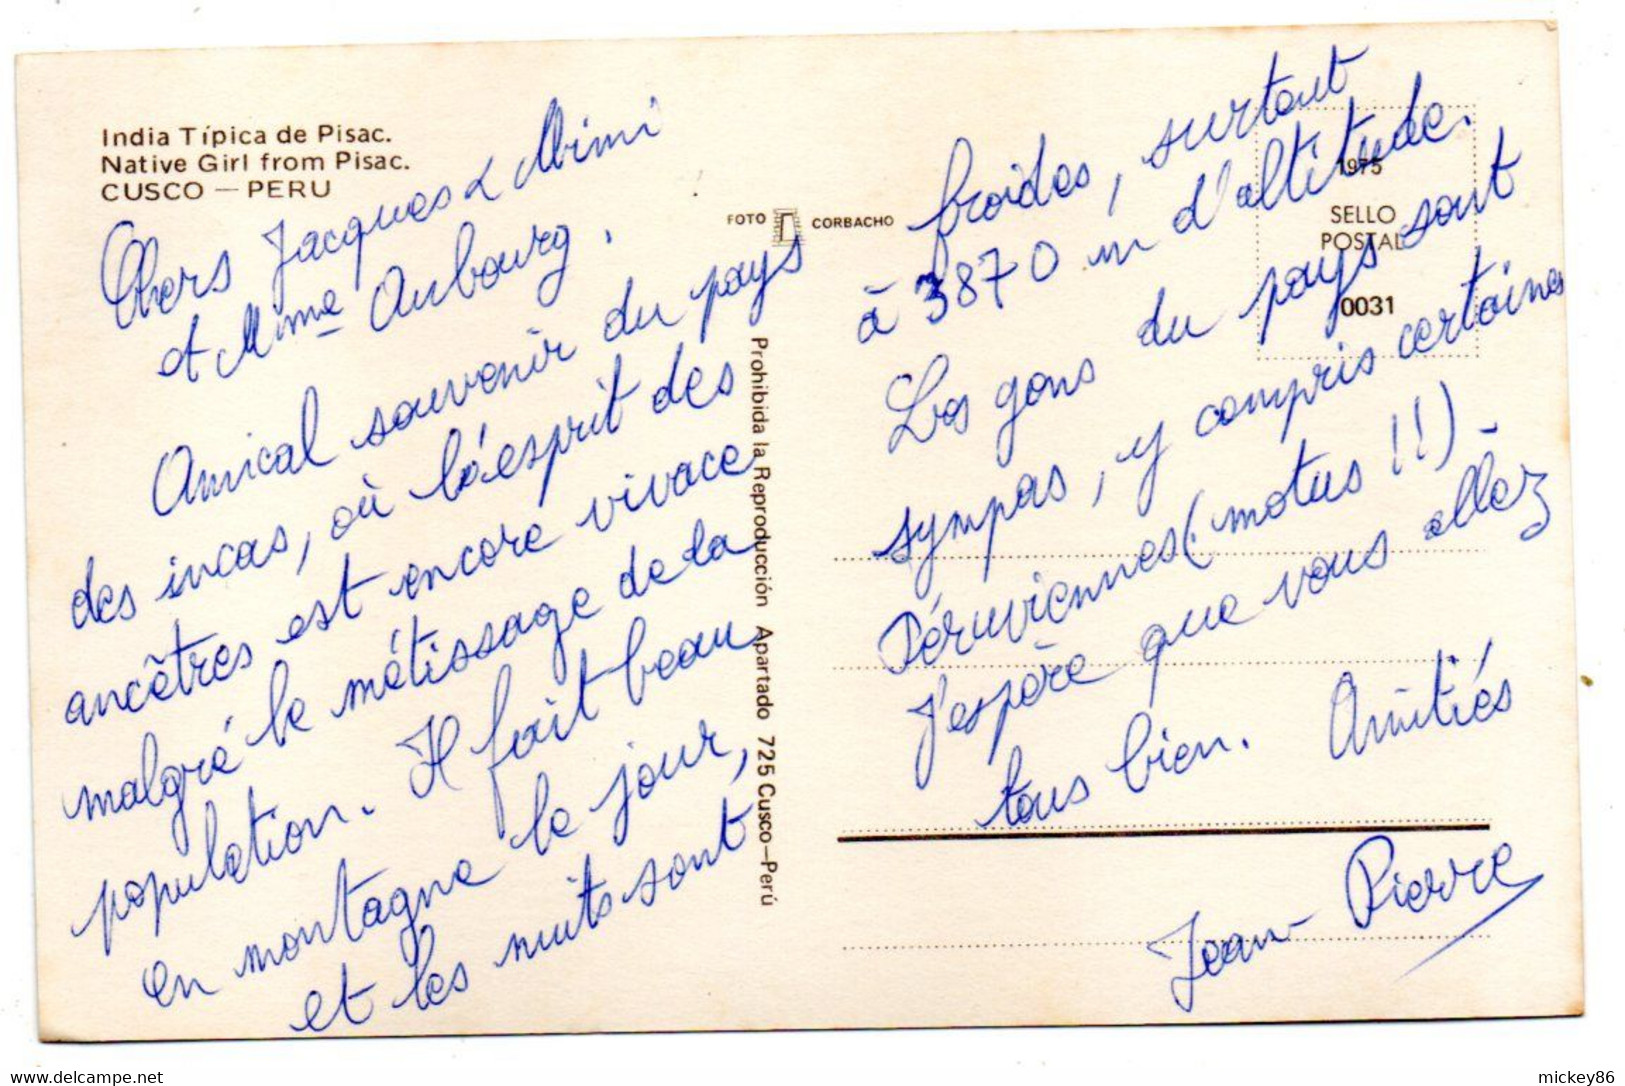 India Típica de Pisac.
Native Girl from Pisac.
CUSCO — PERU
Chers Jacques & Mimi
et Mme Aubourg,
Amical souvenir du pays
des incas, où l'esprit des
ancêtres est encore vivace
malgré le métissage de la
population. Il fait beau
en montagne le jour,
et les nuits sont
FOTO CORBACHO
Prohibida la Reproducción Apartado 725 Cusco—Perú
froides, surtout
à 3870 m d'altitude.
Les gens du pays sont
sympas, y compris certaines
Péruviennes (motus !!) -
J'espère que vous allez
tous bien. Amitiés
Jean-Pierre
1975
SELLO
POSTAL
0031
mickey86